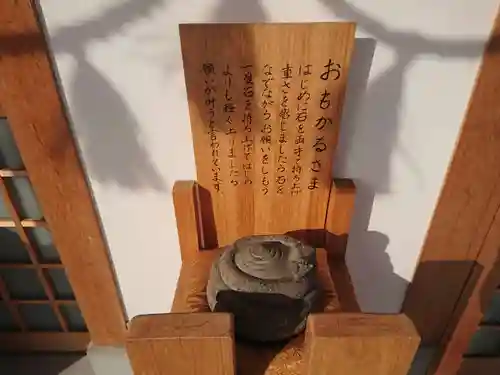 おもかるさま
はじめに石を両手で持ち上げ
重さを感じましたら石を
なでながらお願いをしもう
一度石を持ち上げてはじめ
よりも軽く上がりましたら
願いが叶うと言われています